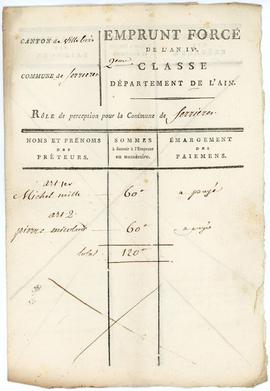 CANTON de Villebois
COMMUNE de Serrieres
EMPRUNT FORCÉ
DE L'AN IVe.
2eme CLASSE
DÉPARTEMENT DE L'AIN.
RÔLE de perception pour la Commune de Serrieres
NOMS ET PRÉNOMS
DES
PRÊTEURS.
SOMMES
à fournir à l'Emprunt
en numéraire.
ÉMARGEMENT
DES
PAIEMENS.
art 1er
Michel 60# a payé
art 2
pierre 60# a payé
total 120#